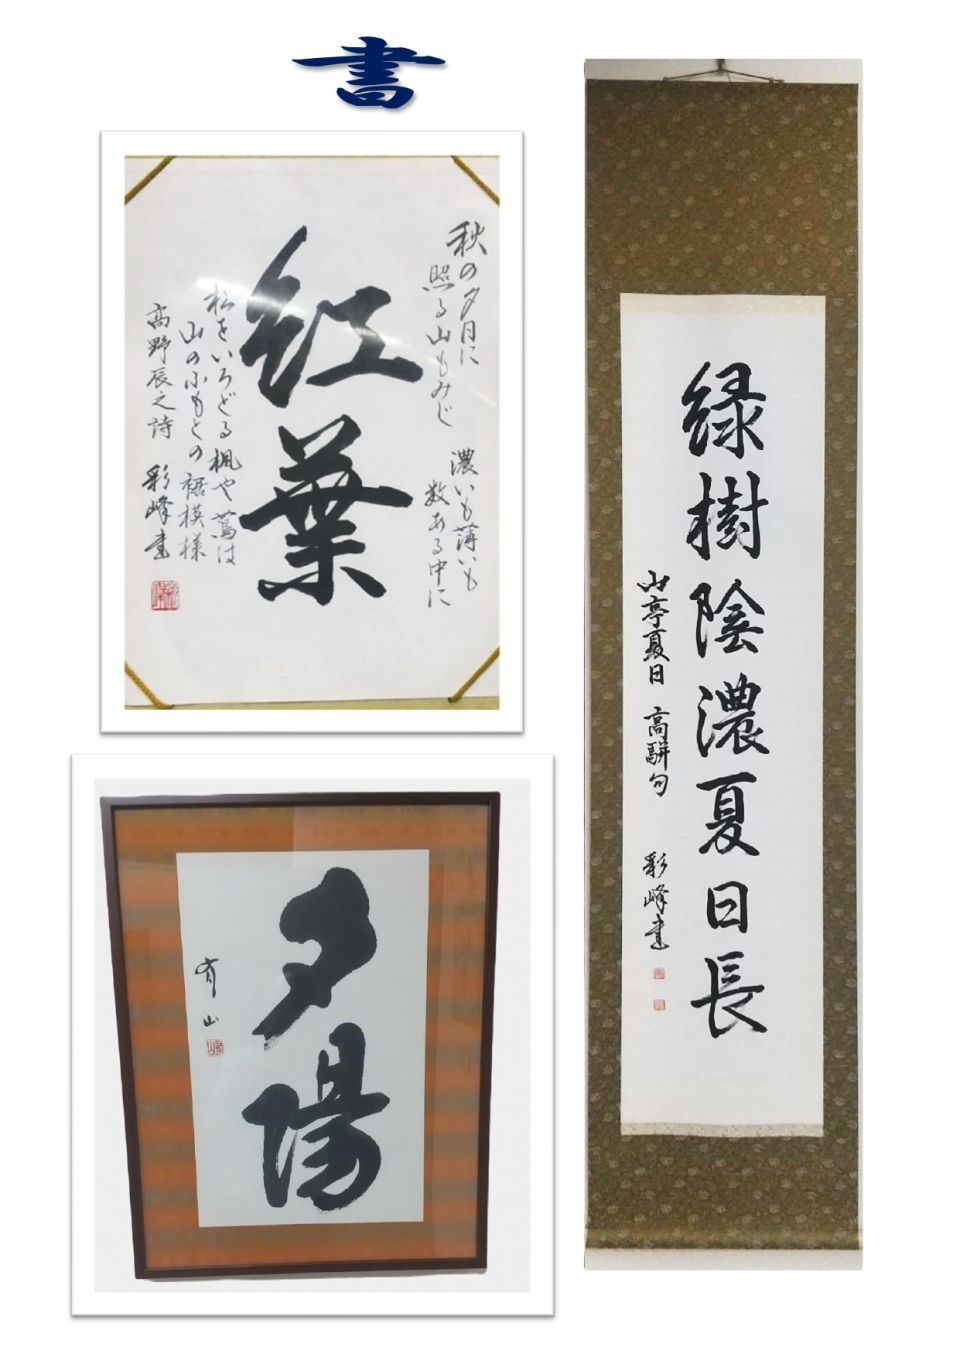 書
紅葉
秋の夕日に
照る山もみじ
濃いも薄いも
数ある中に
松をいろどる楓や蔦は
山のふもとの裾模様
高野辰之詩 彩峰書
緑樹陰濃夏日長
山亭夏日 高駢句 彩峰書
夕陽
有山